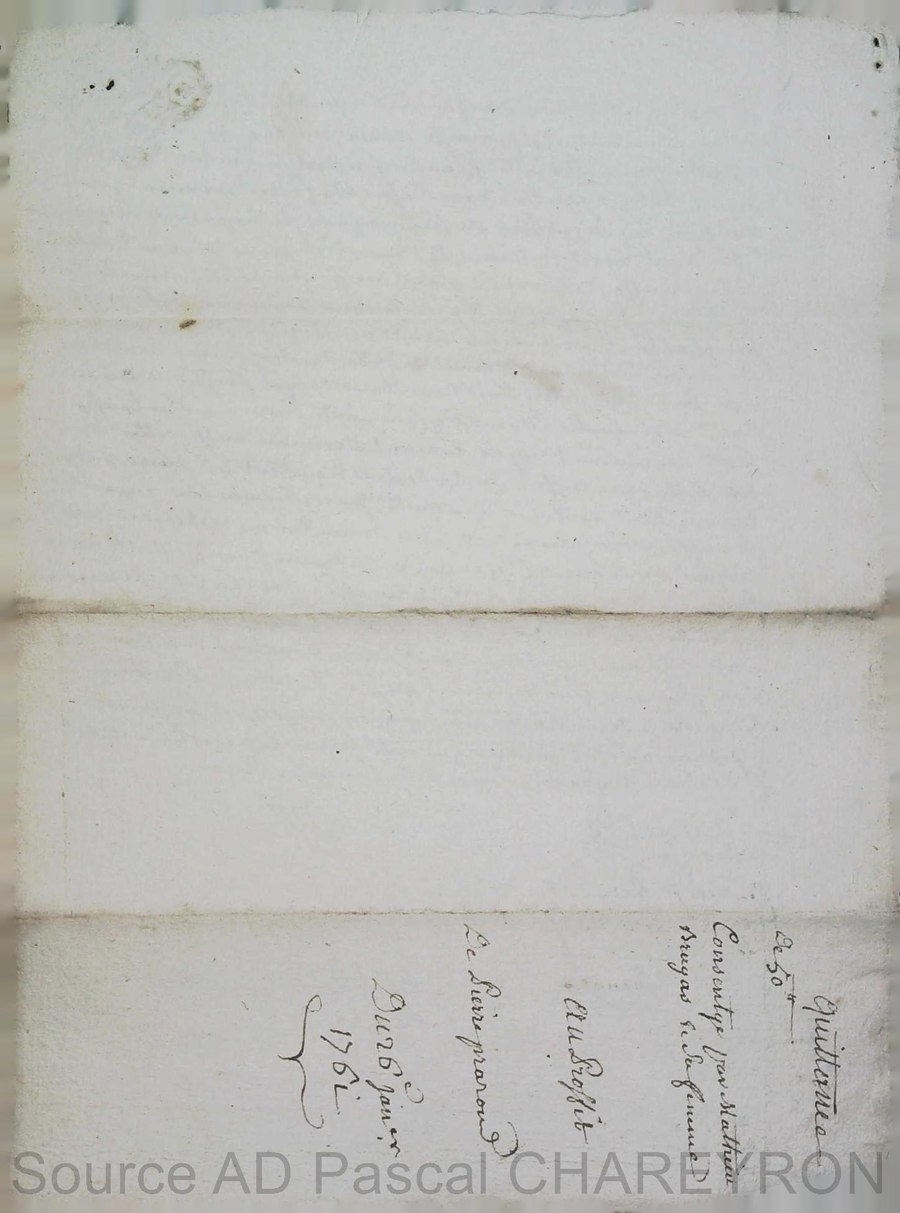 Quittance
De 50ᵗᵗ
Consentye par Mathieu
Brugas Et Sa femme
Au Proffit
De Pierre praroud
Du 26ᵉ janvier
1761
Source AD Pascal CHAREYRON